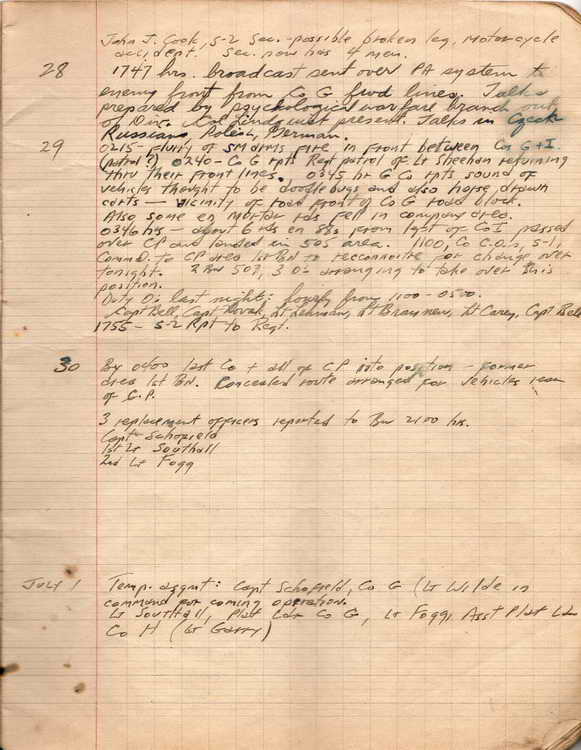 John J. Cook, S-2 Sec. - possible broken leg, motorcycle
accident. Sec. now has 4 men.
28 1747 hrs. broadcast sent over PA system to
enemy front from Co G fwd lines. Talks
prepared by psychological warfare branch
of Div. Col Lindquist present. Talks in Czech
Russian, Polish, German.
29 0215 - flurry of sm arms fire in front between Co G + I.
(patrol?) 0240 - Co G rpts Regt patrol of Lt Sheehan returning
thru their front lines. 0345 hr G Co rpts sound of
vehicles thought to be doodle bugs and also horse drawn
carts - vicinity of road front of Co G road block.
Also some en mortar rds fell in company area.
0346 hrs - about 6 rds en 88s from left of Co I passed
over CP and landed in 505 area. 1100, Co C.O.s, S-1,
Comm O. to CP area 1st Bn to reconnoitre for change over
tonight. 2 Bn 507, 3 O's arranging to take over this
position.
Duty O's last night: hourly from 1100 - 0500.
Capt Bell, Capt Novak, Lt Lehman, Lt Lt Carey, Capt Bell
1755 - S-2 Rpt to Regt.
30 By 0400 last Co + all of CP into position - former
area 1st Bn. Concealed route arranged for vehicles rear
of C.P.
3 replacement officers reported to Bn 2100 hrs.
Capt Schofield
1st Lt Southall
2nd Lt Fogg
JULY 1 Temp. asgmt: Capt Schofield, Co G (Lt Wilde in
command for coming operation.
Lt Southall, Plat Ldr Co G, Lt Fogg, Asst Plat Ldr
Co H (Lt Garry)